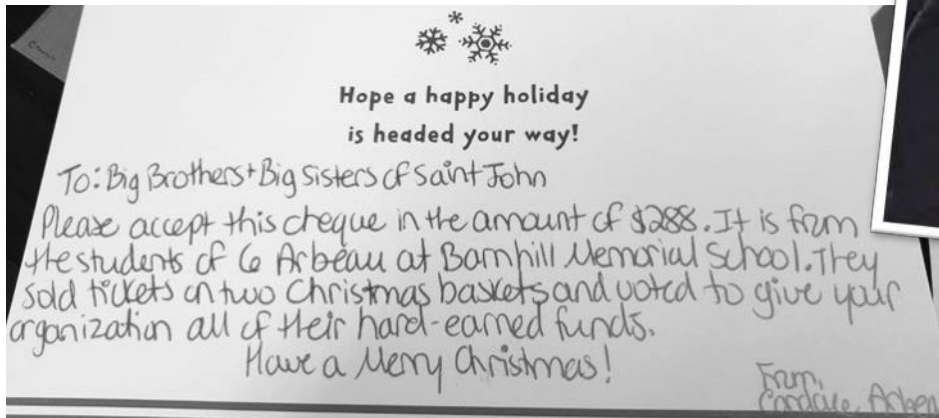 Hope a happy holiday
is headed your way!
To: Big Brothers + Big Sisters of Saint John
Please accept this cheque in the amount of $288. It is from
the students of 6 Arbeau at Barnhill Memorial School. They
sold tickets on two Christmas baskets and voted to give your
organization all of their hard-earned funds.
Have a Merry Christmas!
From,